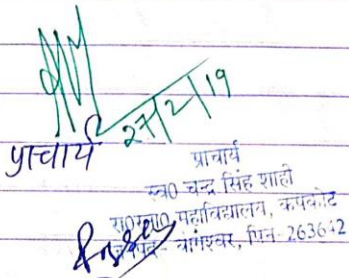 27/2/19
प्राचार्य
प्राचार्य
स्व0 चन्द्र सिंह शाही
रा0स्ना0 महाविद्यालय, कपकोट
बागेश्वर, पिन- 263642